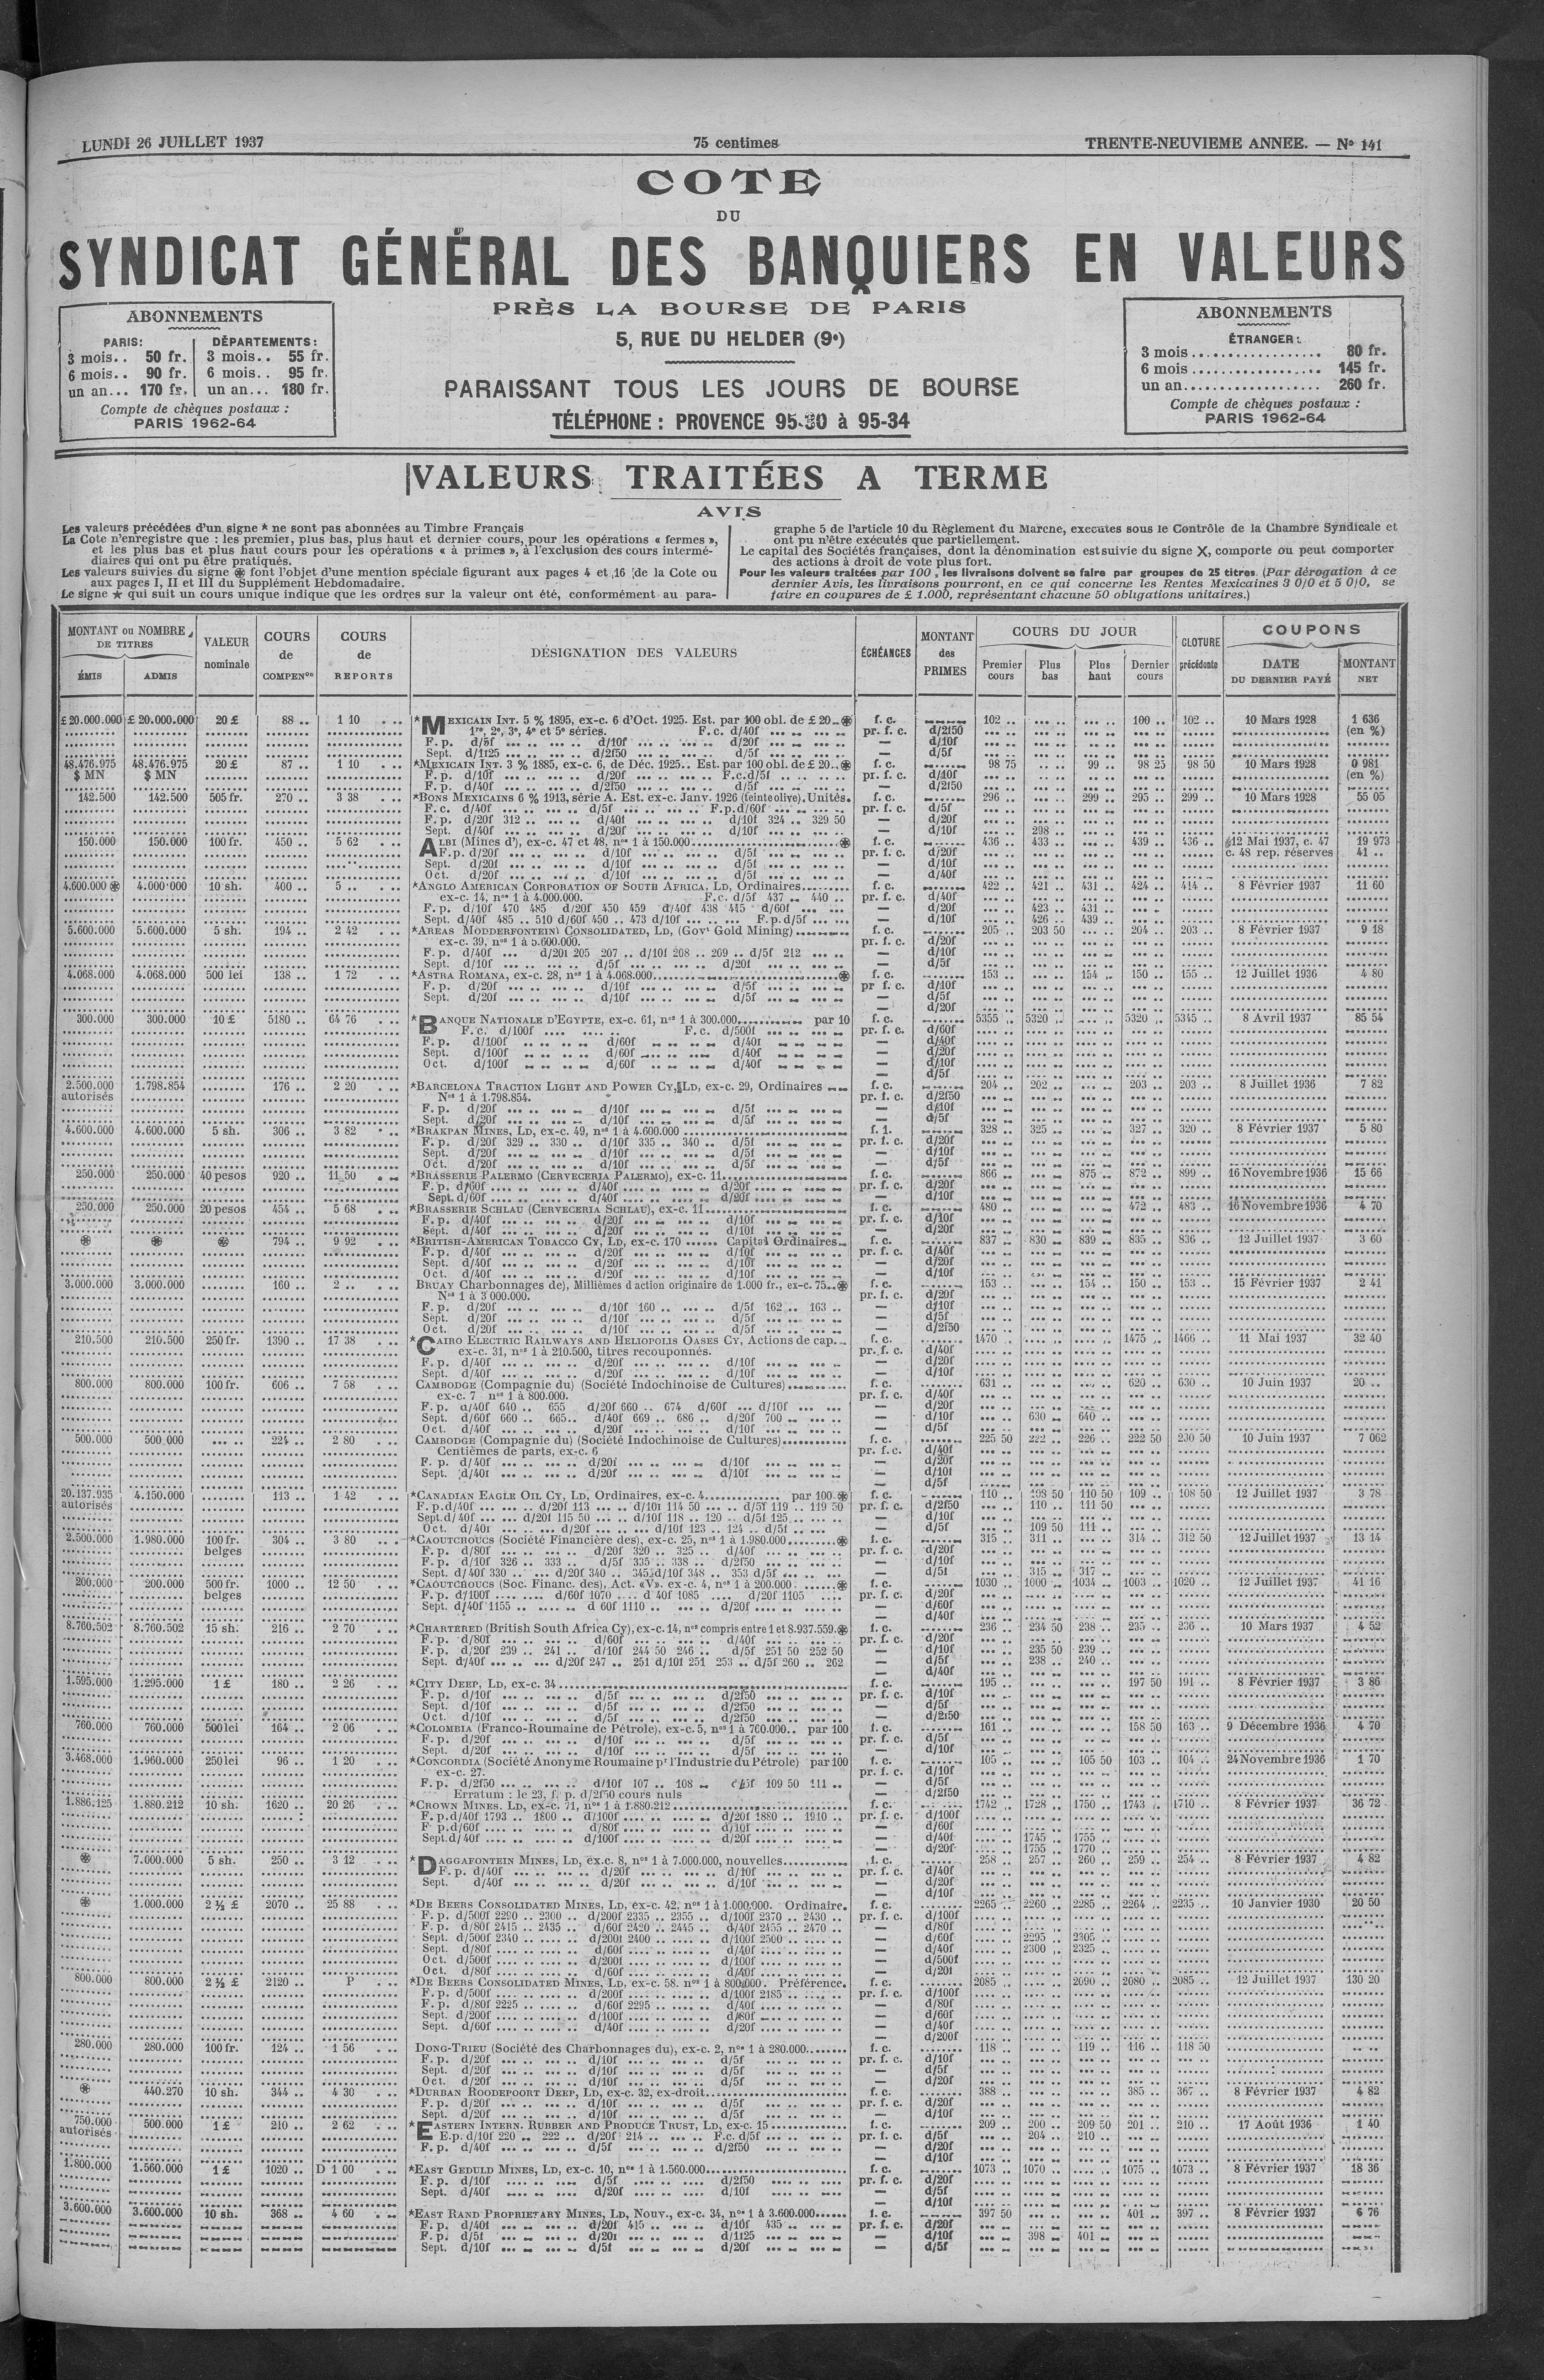 LUNDI 26 JUILLET 1937
75 centimes
TRENTE-NEUVIEME ANNEE. — Nº 141
COTE
DU
SYNDICAT GÉNÉRAL DES BANQUIERS EN VALEURS
PRÈS LA BOURSE DE PARIS
5, RUE DU HELDER (9e)
PARAISSANT TOUS LES JOURS DE BOURSE
TÉLÉPHONE : PROVENCE 95-30 à 95-34
ABONNEMENTS
PARIS: DÉPARTEMENTS:
3 mois.. 50 fr. 3 mois.. 55 fr.
6 mois.. 90 fr. 6 mois.. 95 fr.
un an... 170 fr. un an... 180 fr.
Compte de chèques postaux :
PARIS 1962-64
ABONNEMENTS
ÉTRANGER:
3 mois.................. 80 fr.
6 mois.................. 145 fr.
un an................... 260 fr.
Compte de chèques postaux :
PARIS 1962-64
VALEURS TRAITÉES A TERME
AVIS
Les valeurs précédées d'un signe * ne sont pas abonnées au Timbre Français
La Cote n'enregistre que : les premier, plus bas, plus haut et dernier cours, pour les opérations « fermes »,
et les plus bas et plus haut cours pour les opérations « à primes », à l'exclusion des cours intermé-
diaires qui ont pu être pratiqués.
Les valeurs suivies du signe ⊛ font l'objet d'une mention spéciale figurant aux pages 4 et 16 de la Cote ou
aux pages I, II et III du Supplément Hebdomadaire.
Le signe ★ qui suit un cours unique indique que les ordres sur la valeur ont été, conformément au para-
graphe 5 de l'article 10 du Règlement du Marché, exécutés sous le Contrôle de la Chambre Syndicale et
ont pu n'être exécutés que partiellement.
Le capital des Sociétés françaises, dont la dénomination est suivie du signe X, comporte ou peut comporter
des actions à droit de vote plus fort.
Pour les valeurs traitées par 100, les livraisons doivent se faire par groupes de 25 titres. (Par dérogation à ce
dernier Avis, les livraisons pourront, en ce qui concerne les Rentes Mexicaines 3 0/0 et 5 0/0, se
faire en coupures de £ 1.000, représentant chacune 50 obligations unitaires.)
MONTANT ou NOMBRE DE TITRES
ÉMIS ADMIS
VALEUR nominale
COURS de COMPENon
COURS de REPORTS
DÉSIGNATION DES VALEURS
ÉCHÉANCES
MONTANT des PRIMES
COURS DU JOUR
Premier cours Plus bas Plus haut Dernier cours
CLOTURE précédente
COUPONS
DATE DU DERNIER PAYÉ MONTANT NET
£ 20.000.000 £ 20.000.000 20 £ 88 .. 1 10 *MEXICAIN INT. 5 % 1895, ex-c. 6 d'Oct. 1925. Est. par 100 obl. de £ 20..⊛ f. c. 102 .. 100 .. 102 .. 10 Mars 1928 1 636
1re, 2e, 3e, 4e et 5e séries. F. c. d/40f pr. f. c. d/2f50 (en %)
F. p. d/5f d/10f d/20f — d/10f
Sept. d/1f25 d/2f50 d/5f — d/5f
48.476.975 48.476.975 20 £ 87 .. 1 10 *MEXICAIN INT. 3 % 1885, ex-c. 6, de Déc. 1925.. Est. par 100 obl. de £ 20..⊛ f. c. 98 75 99 .. 98 25 98 50 10 Mars 1928 0 981
$ MN $ MN F. p. d/10f d/20f F.c.d/5f pr. f. c. d/10f (en %)
F. p. d/40f d/2f50 d/5f — d/2f50
142.500 142.500 505 fr. 270 .. 3 38 *BONS MEXICAINS 6 % 1913, série A. Est. ex-c. Janv. 1926 (teinte olive). Unités. f. c. 296 .. 299 .. 295 .. 299 .. 10 Mars 1928 55 05
F. c. d/40f d/5f F.p.d/60f pr. f. c. d/5f
F. p. d/20f 312 .. d/40f d/10f 324 .. 329 50 — d/20f
Sept. d/40f d/20f d/10f — d/10f 298 ..
150.000 150.000 100 fr. 450 .. 5 62 ALBI (Mines d'), ex-c. 47 et 48, nos 1 à 150.000 ⊛ f. c. 436 .. 433 .. 439 .. 436 .. 12 Mai 1937, c. 47 19 973
F. p. d/20f d/10f d/5f pr. f. c. d/20f c. 48 rep. réserves 41 ..
Sept. d/20f d/10f d/5f — d/10f
Oct. d/20f d/10f d/5f — d/40f
4.600.000 ⊛ 4.000.000 10 sh. 400 .. 5 .. *ANGLO AMERICAN CORPORATION OF SOUTH AFRICA, LD, Ordinaires f. c. 422 .. 421 .. 431 .. 424 .. 414 .. 8 Février 1937 11 60
ex-c. 14, nos 1 à 4.000.000. F.c. d/5f 437 .. 440 .. pr. f. c. d/40f
F. p. d/10f 470 485 d/20f 450 459 d/40f 438 445 d/60f — d/20f 423 .. 431 ..
Sept. d/40f 485 .. 510 d/60f 450 .. 473 d/10f F.p.d/5f — d/10f 426 .. 439 ..
5.600.000 5.600.000 5 sh. 194 .. 2 42 *AREAS MODDERFONTEIN CONSOLIDATED, LD, (Govt Gold Mining) f. c. 205 .. 203 50 204 .. 203 .. 8 Février 1937 9 18
ex-c. 39, nos 1 à 5.600.000. pr. f. c. d/20f
F. p. d/40f d/20f 205 207 .. d/10f 208 .. 209 .. d/5f 212 — d/10f
Sept. d/10f d/5f d/20f — d/5f
4.068.000 4.068.000 500 lei 138 .. 1 72 *ASTRA ROMANA, ex-c. 28, nos 1 à 4.068.000 ⊛ f. c. 153 .. 154 .. 150 .. 155 .. 12 Juillet 1936 4 80
F. p. d/20f d/10f d/5f pr f. c. d/10f
Sept. d/20f d/10f d/5f — d/5f
— d/20f
300.000 300.000 10 £ 5180 .. 64 76 *BANQUE NATIONALE D'EGYPTE, ex-c. 61, nos 1 à 300.000 par 10 f. c. 5355 .. 5320 .. 5320 .. 5345 .. 8 Avril 1937 85 54
F. c. d/100f F. c. d/500f pr. f. c. d/60f
F. p. d/100f d/60f d/40f — d/40f
Sept. d/100f d/60f d/40f — d/20f
Oct. d/100f d/60f d/40f — d/10f
— d/5f
2.500.000 1.798.854 176 .. 2 20 *BARCELONA TRACTION LIGHT AND POWER CY, LD, ex-c. 29, Ordinaires f. c. 204 .. 202 .. 203 .. 203 .. 8 Juillet 1936 7 82
autorisés Nos 1 à 1.798.854. pr. f. c. d/2f50
F. p. d/20f d/10f d/5f — d/10f
Sept. d/20f d/10f d/5f — d/5f
4.600.000 4.600.000 5 sh. 306 .. 3 82 *BRAKPAN MINES, LD, ex-c. 49, nos 1 à 4.600.000 f. 1. 328 .. 325 .. 327 .. 320 .. 8 Février 1937 5 80
F. p. d/20f 329 .. 330 .. d/10f 335 .. 340 .. d/5f pr. f. c. d/20f
Sept. d/20f d/10f d/5f — d/10f
Oct. d/20f d/10f d/5f — d/5f
250.000 250.000 40 pesos 920 .. 11 50 *BRASSERIE PALERMO (CERVECERIA PALERMO), ex-c. 11 f. c. 866 .. 875 .. 872 .. 899 .. 16 Novembre 1936 15 66
F. p. d/60f d/40f d/20f pr. f. c. d/20f
Sept. d/60f d/40f d/20f — d/10f
250.000 250.000 20 pesos 454 .. 5 68 *BRASSERIE SCHLAU (CERVECERIA SCHLAU), ex-c. 11 f. c. 480 .. 472 .. 483 .. 16 Novembre 1936 4 70
F. p. d/40f d/20f d/10f pr. f. c. d/10f
Sept. d/40f d/20f d/10f — d/20f
⊛ ⊛ ⊛ 794 .. 9 92 *BRITISH-AMERICAN TOBACCO CY, LD, ex-c. 170 Capital Ordinaires f. c. 837 .. 830 .. 839 .. 835 .. 836 .. 12 Juillet 1937 3 60
F. p. d/40f d/20f d/10f pr. f. c. d/40f
Sept. d/40f d/20f d/10f — d/20f
Oct. d/40f d/20f d/10f — d/10f
3.000.000 3.000.000 160 .. 2 .. BRUAY Charbonnages de), Millièmes d action originaire de 1.000 fr., ex-c. 75..⊛ f. c. 153 .. 154 .. 150 .. 153 .. 15 Février 1937 2 41
Nos 1 à 3 000.000. pr. f. c. d/20f
F. p. d/20f d/10f 160 .. d/5f 162 .. 163 .. — d/10f
Sept. d/20f d/10f d/5f — d/5f
Oct. d/20f d/10f d/5f — d/2f50
210.500 210.500 250 fr. 1390 .. 17 38 *CAIRO ELECTRIC RAILWAYS AND HELIOPOLIS OASES CY, Actions de cap. f. c. 1470 .. 1475 .. 1466 .. 11 Mai 1937 32 40
ex-c. 31, nos 1 à 210.500, titres recouponnés. pr. f. c. d/40f
F. p. d/40f d/20f d/10f — d/20f
Sept. d/40f d/20f d/10f — d/10f
800.000 800.000 100 fr. 606 .. 7 58 CAMBODGE (Compagnie du) (Société Indochinoise de Cultures) f. c. 631 .. 620 .. 630 .. 10 Juin 1937 20 ..
ex-c. 7 nos 1 à 800.000. pr. f. c. d/40f
F. p. d/40f 640 .. 655 d/20f 660 .. 674 d/60f d/10f — d/20f
Sept. d/60f 660 .. 665.. d/40f 669 .. 686 .. d/20f 700 — d/10f 630 .. 640 ..
Oct. d/40f d/20f d/10f — d/5f
500.000 500.000 224 .. 2 80 CAMBODGE (Compagnie du) (Société Indochinoise de Cultures) f. c. 225 50 222 .. 226 .. 222 50 230 50 10 Juin 1937 7 062
Centièmes de parts, ex-c. 6 pr. f. c. d/40f
F. p. d/40f d/20f d/10f — d/20f
Sept. d/40f d/20f d/10f — d/10f
— d/5f
20.137.935 4.150.000 113 .. 1 42 *CANADIAN EAGLE OIL CY, LD, Ordinaires, ex-c. 4 par 100 ⊛ f. c. 110 .. 108 50 110 50 109 .. 108 50 12 Juillet 1937 3 78
autorisés F. p.d/40f d/20f 113 d/10f 114 50 d/5f 119 .. 119 50 pr. f. c. d/2f50 110 .. 111 50
Sept.d/40f d/20f 115 50 d/10f 118 .. 120 .. d/5f 125 — d/10f
Oct. d/40f d/20f d/10f 123 .. 124 .. d/5f — d/5f 109 50 111 ..
2.500.000 1.980.000 100 fr. 304 .. 3 80 *CAOUTCHOUCS (Société Financière des), ex-c. 25, nos 1 à 1.980.000 ⊛ f. c. 315 .. 311 .. 314 .. 312 50 12 Juillet 1937 13 14
belges F. p. d/80f d/20f 320 .. 325 .. d/40f pr. f. c. d/20f
F. p. d/10f 326 .. 333 .. d/5f 335 .. 338 .. d/2f50 — d/10f
Sept. d/40f 330 d/20f 340 .. 345 d/10f 348 .. 353 d/5f — d/5f 315 .. 317 ..
200.000 200.000 500 fr. 1000 .. 12 50 *CAOUTCHOUCS (Soc. Financ. des), Act. «V». ex-c. 4, nos 1 à 200.000 ⊛ f. c. 1030 .. 1000 .. 1034 .. 1003 .. 1020 .. 12 Juillet 1937 41 16
belges F. p. d/100f d/60f 1070 d 40f 1085 d/20f 1105 pr. f. c. d/20f
Sept. d/40f 1155 d 60f 1110 d/20f — d/60f
— d/40f
8.760.502 8.760.502 15 sh. 216 .. 2 70 *CHARTERED (British South Africa Cy), ex-c. 14, nos compris entre 1 et 8.937.559.⊛ f. c. 236 .. 234 50 238 .. 235 .. 236 .. 10 Mars 1937 4 52
F. p. d/80f d/60f d/40f pr. f. c. d/20f
F. p. d/20f 239 .. 241 .. d/10f 244 50 246 .. d/5f 251 50 252 50 — d/10f 235 50 239 ..
Sept. d/40f d/20f 247 .. 251 d/10f 251 253 .. d/5f 260 .. 262 — d/5f 238 .. 240 ..
— d/40f
1.595.000 1.295.000 1 £ 180 .. 2 26 *CITY DEEP, LD, ex-c. 34 f. c. 195 .. 197 50 191 .. 8 Février 1937 3 86
F. p. d/10f d/5f d/2f50 pr. f. c. d/10f
Sept. d/10f d/5f d/2f50 — d/5f
Oct. d/10f d/5f d/2f50 — d/2f50
760.000 760.000 500 lei 164 .. 2 06 *COLOMBIA (Franco-Roumaine de Pétrole), ex-c. 5, nos 1 à 760.000.. par 100 f. c. 161 .. 158 50 163 .. 9 Décembre 1936 4 70
F. p. d/20f d/10f d/5f pr. f. c. d/5f
Sept. d/20f d/10f d/5f — d/10f
3.468.000 1.960.000 250 lei 96 .. 1 20 *CONCORDIA (Société Anonyme Roumaine pr l'Industrie du Pétrole) par 100 f. c. 105 .. 105 50 103 .. 104 .. 24 Novembre 1936 1 70
ex-c. 27. pr. f. c. d/10f
F. p. d/2f50 d/10f 107 .. 108 .. d/5f 109 50 111 .. — d/5f
Erratum : le 23, f. p. d/2f50 cours nuls — d/2f50
1.886.125 1.880.212 10 sh. 1620 .. 20 26 *CROWN MINES, LD, ex-c. 71, nos 1 à 1.880.212 f. c. 1742 .. 1728 .. 1750 .. 1743 .. 1710 .. 8 Février 1937 36 72
F. p.d/40f 1793 .. 1800 .. d/100f d/20f 1880 .. 1910 .. pr. f. c. d/100f
F p.d/60f d/80f d/10f — d/60f
Sept.d/40f d/100f d/20f — d/40f 1745 .. 1755 ..
— d/20f 1755 .. 1770 ..
⊛ 7.000.000 5 sh. 250 .. 3 12 *DAGGAFONTEIN MINES, LD, ex.c. 8, nos 1 à 7.000.000, nouvelles f. c. 258 .. 257 .. 260 .. 259 .. 254 .. 8 Février 1937 4 82
F. p. d/40f d/20f d/10f pr. f. c. d/40f
Sept. d/40f d/20f d/10f — d/20f
— d/10f
⊛ 1.000.000 2 ½ £ 2070 .. 25 88 *DE BEERS CONSOLIDATED MINES, LD, ex-c. 42, nos 1 à 1.000.000. Ordinaire. f. c. 2265 .. 2260 .. 2285 .. 2264 .. 2235 .. 10 Janvier 1930 20 50
F. p. d/500f 2290 .. 2300 .. d/200f 2335 .. 2355 .. d/100f 2370 .. 2430 .. pr. f. c. d/100f
F. p. d/80f 2415 .. 2435 .. d/60f 2420 .. 2445 .. d/40f 2455 .. 2470 .. — d/80f
Sept. d/500f 2340 d/200f 2400 d/100f 2500 — d/60f 2295 .. 2305 ..
Sept. d/80f d/60f d/40f — d/40f 2300 .. 2325 ..
Oct. d/500f d/200f d/100f — d/500f
Oct. d/80f d/60f d/40f — d/20f
800.000 800.000 2 ½ £ 2120 .. P *DE BEERS CONSOLIDATED MINES, LD, ex-c. 58. nos 1 à 800.000. Préférence. f. c. 2085 .. 2090 .. 2080 .. 2085 .. 12 Juillet 1937 130 20
F. p. d/500f d/200f d/100f 2185 pr. f. c. d/100f
F. p. d/80f 2225 d/60f 2295 d/40f — d/80f
Sept. d/200f d/100f d/80f — d/60f
Sept. d/60f d/40f d/20f — d/40f
— d/200f
280.000 280.000 100 fr. 124 .. 1 56 DONG-TRIEU (Société des Charbonnages du), ex-c. 2, nos 1 à 280.000 f. c. 118 .. 119 .. 116 .. 118 50
F. p. d/20f d/10f d/5f pr. f. c. d/10f
Sept. d/20f d/10f d/5f — d/5f
Oct. d/20f d/10f d/5f — d/20f
⊛ 440.270 10 sh. 344 .. 4 30 *DURBAN ROODEPOORT DEEP, LD, ex-c. 32, ex-droit f. c. 388 .. 385 .. 367 .. 8 Février 1937 4 82
F. p. d/20f d/10f d/5f pr. f. c. d/20f
Sept. d/20f d/10f d/5f — d/10f
750.000 500.000 1 £ 210 .. 2 62 *EASTERN INTERN. RUBBER AND PRODUCE TRUST, LD, ex-c. 15 f. c. 209 .. 200 .. 209 50 201 .. 210 .. 17 Août 1936 1 40
autorisés E.p. d/10f 220 .. 222 .. d/20f 214 F.c. d/5f pr. f. c. d/5f 204 .. 210 ..
F. p. d/40f d/5f d/2f50 — d/20f
— d/10f
1.800.000 1.560.000 1 £ 1020 .. D 1 00 *EAST GEDULD MINES, LD, ex-c. 10, nos 1 à 1.560.000 f. c. 1073 .. 1070 .. 1075 .. 1073 .. 8 Février 1937 18 36
F. p. d/10f d/5f d/2f50 pr. f. c. d/20f
Sept. d/40f d/20f d/10f — d/5f
— d/10f
3.600.000 3.600.000 10 sh. 368 .. 4 60 *EAST RAND PROPRIETARY MINES, LD, Nouv., ex-c. 34, nos 1 à 3.600.000 f. c. 397 50 401 .. 397 .. 8 Février 1937 6 76
F. p. d/40f d/20f 415 d/10f 435 pr. f. c. d/20f
F. p. d/5f d/20f d/1f25 — d/10f 398 .. 401 ..
Sept. d/10f d/5f d/20f — d/5f